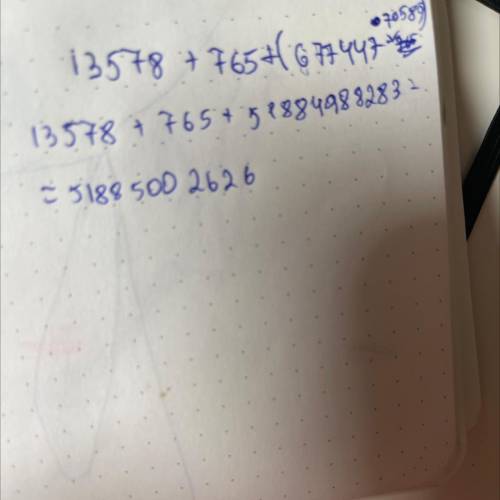 13578 + 765 + (677447 • 70589)
13578 + 765 + 51884988283 =
= 51885002626